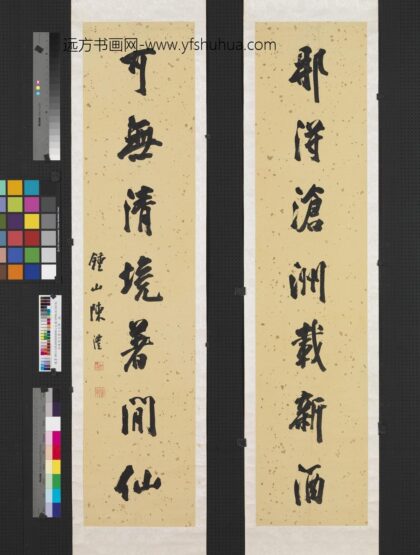 远方书画网-www.yfshuhua.com
那得滄洲載新酒
可無清境著閒仙
鍾山陳澧